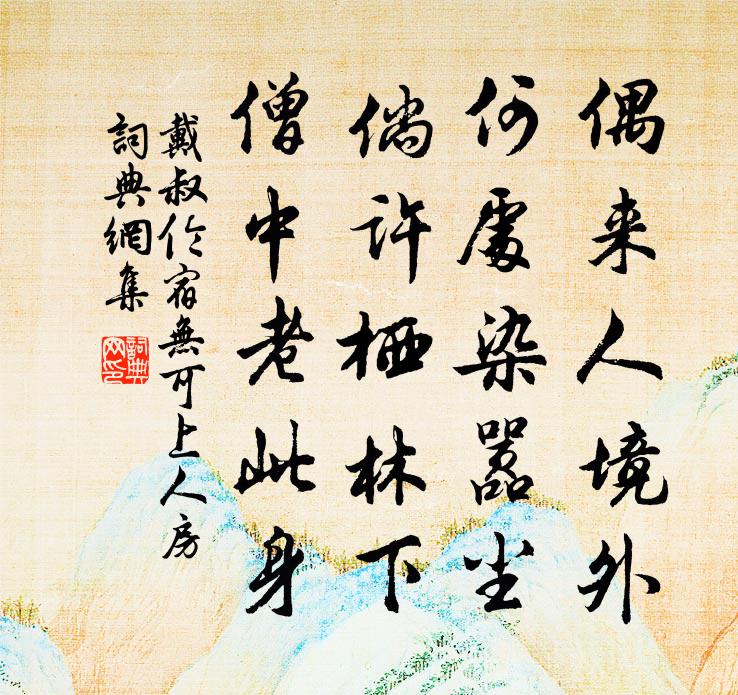 偶来人境外
何處染嚣尘
倘許栖林下
僧中老此身
戴叔伦宿無可上人房
詞典網集
詞典网印